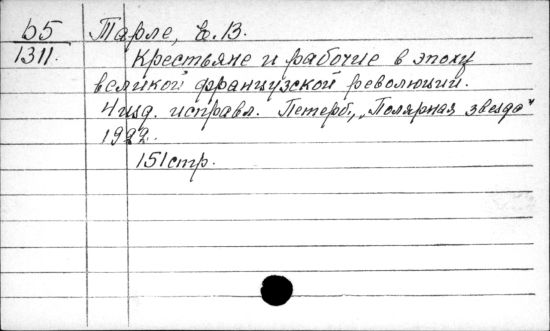 b5 Тарле, Е. В.
1311. Крестьяне и рабочие в эпоху
великой французской революции.
4 изд. исправл. Петерб., „Полярная звезда"
1922.
151 стр.